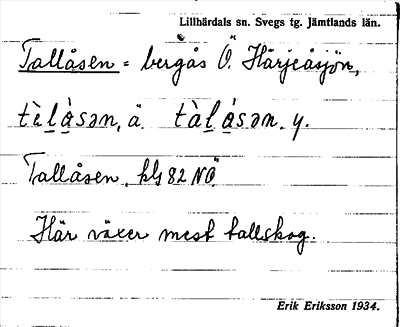 Lillhärdals sn. Svegs tg. Jämtlands län.
Tallåsen = bergås Ö. Härjeåsjön,
tèlåsən, ä. tàlåsən. y.
Tallåsen, kbl 82 NÖ.
Här växer mest tallskog.
Erik Eriksson 1934.